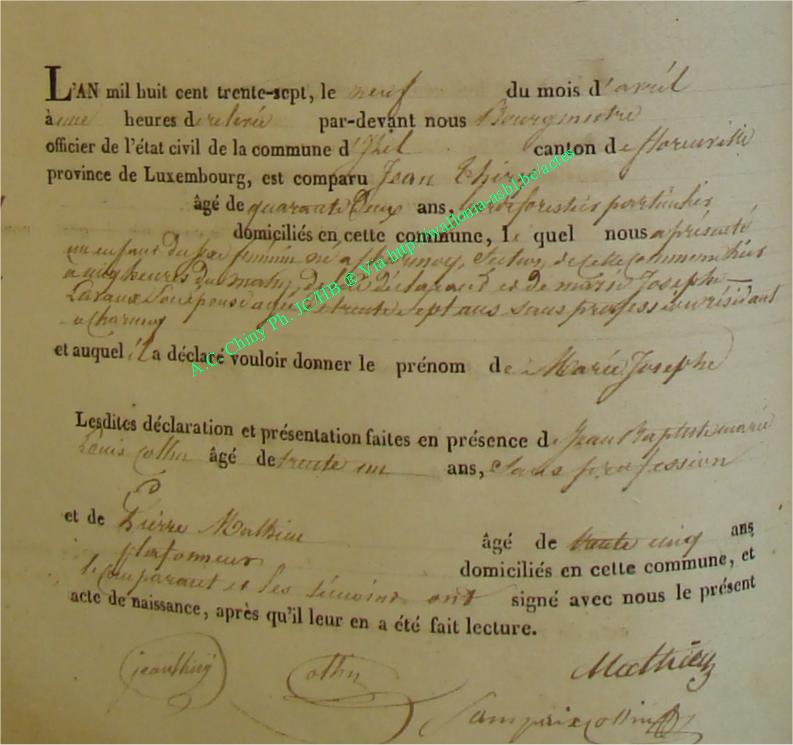 L'AN mil huit cent trente-sept, le neuf du mois d'avril
à une heures de relevée par-devant nous Bourgmestre
officier de l'état civil de la commune d'Izel canton de florenville
province de Luxembourg, est comparu Jean Thiry
âgé de quarante deux ans, garde forestier particulier
domiciliés en cette commune, le quel nous a présenté
un enfant du sexe féminin né a charmoy, section de cette commune hier
a cinq heures du matin, de lui déclarant et de marie Joseph
Lavaux Son épouse agée de trente sept ans sans profession résidant
a Charmoy
et auquel il a déclaré vouloir donner le prénom de Marie Josephe
Lesdites déclaration et présentation faites en présence de Jean Baptiste marie
Louis Collin âgé de trente un ans, Sans profession
et de Pierre Mathieu âgé de trente cinq ans
plafonneur domiciliés en cette commune, et
le comparant et les témoins ont signé avec nous le présent
acte de naissance, après qu'il leur en a été fait lecture.
jean thiry Collin Mathieu
A.G. Chiny Ph. JC/HB ® Via http://wallonia-asbl.be/actes